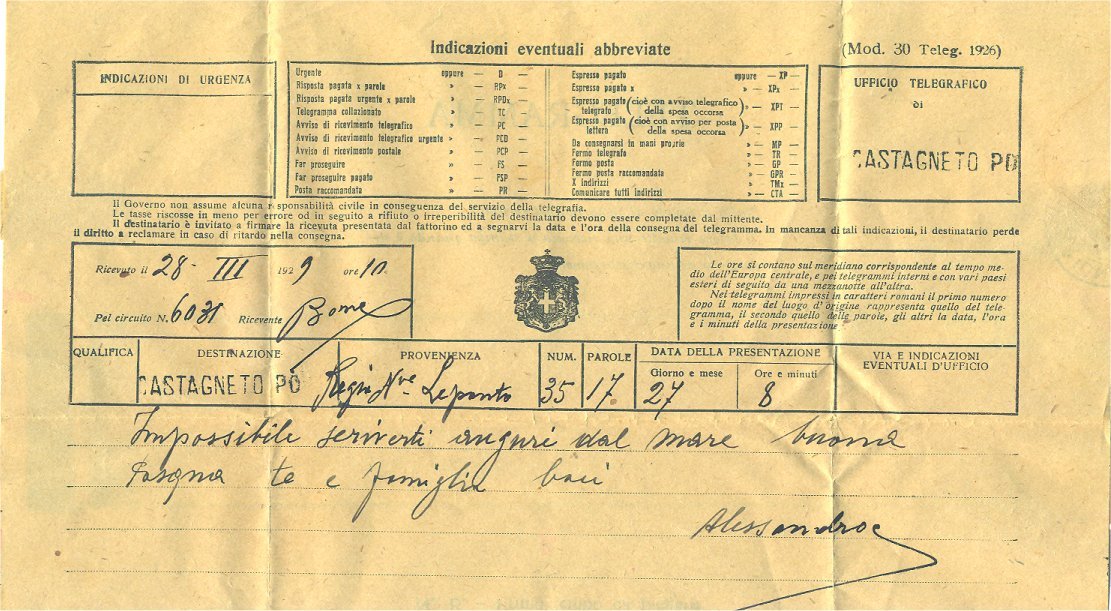 Indicazioni eventuali abbreviate
(Mod. 30 Teleg. 1926)
INDICAZIONI DI URGENZA
Urgente oppure — D —
Risposta pagata x parole » — RPx —
Risposta pagata urgente x parole » — RPDx —
Telegramma collazionato » — TC —
Avviso di ricevimento telegrafico » — PC —
Avviso di ricevimento telegrafico urgente » — PCD —
Avviso di ricevimento postale » — PCP —
Far proseguire » — FS —
Far proseguire pagato » — FSP —
Posta raccomandata » — PR —
Espresso pagato oppure — XP —
Espresso pagato x » — XPx —
Espresso pagato telegrafo (cioè con avviso telegrafico della spesa occorsa) » — XPT —
Espresso pagato lettera (cioè con avviso per posta della spesa occorsa) » — XPP —
Da consegnarsi in mani proprie » — MP —
Fermo telegrafo » — TR —
Fermo posta » — GP —
Fermo posta raccomandata » — GPR —
X indirizzi » — TMx —
Comunicare tutti indirizzi » — CTA —
UFFICIO TELEGRAFICO
di
CASTAGNETO PO
Il Governo non assume alcuna r sponsabilità civile in conseguenza del servizio della telegrafia.
Le tasse riscosse in meno per errore od in seguito a rifiuto o irreperibilità del destinatario devono essere completate dal mittente.
Il destinatario è invitato a firmare la ricevuta presentata dal fattorino ed a segnarvi la data e l'ora della consegna del telegramma. In mancanza di tali indicazioni, il destinatario perde
il diritto a reclamare in caso di ritardo nella consegna.
Ricevuto il 28 - III 1929 ore 10
Pel circuito N. 6031 Ricevente
Le ore si contano sul meridiano corrispondente al tempo me-
dio dell'Europa centrale, e pei telegrammi interni e con vari paesi
esteri di seguito da una mezzanotte all'altra.
Nei telegrammi impressi in caratteri romani il primo numero
dopo il nome del luogo d'origine rappresenta quello del tele-
gramma, il secondo quello delle parole, gli altri la data, l'ora
e i minuti della presentazione.
QUALIFICA
DESTINAZIONE
CASTAGNETO PO
PROVENIENZA
Regia Nve Lepanto
NUM.
35
PAROLE
17
DATA DELLA PRESENTAZIONE
Giorno e mese
27
Ore e minuti
8
VIA E INDICAZIONI
EVENTUALI D'UFFICIO
Impossibile scriverti auguri dal mare buona
Pasqua te e famiglia baci
Alessandro